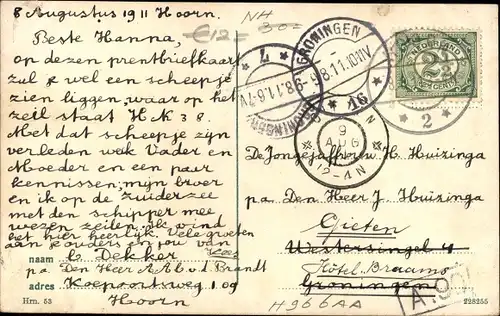 8 Augustus 1911 Hoorn.
€12=
NH
30=
Beste Hanna,
op dezen prentbriefkaart
zul je wel een scheepje
zien liggen, waar op het
zeil staat H K 38.
Met dat scheepje zijn
verleden week Vader en
Moeder en een paar
kennissen, mijn broer
en ik op de Zuiderzee
met den schipper mee
wezen zeilen. Ik vind
het hier heerlijk. Vele groeten
aan je ouders en jou van
naam C. Dekker
p.a. Den Heer A. A. b. v. d. Brandt
adres Koepoortsweg 109
Hoorn
Hrn. 53
GRONINGEN
8.11.10-11V
GRONINGEN
NEDERLAND
2½
CENT
2
9
AUG
12-4N
De Jongejuffrouw H. Huizinga
p.a. Den Heer J. Huizinga
Gieten
Westersingel 4
Hôtel Braams
Groningen
H966AA
228255